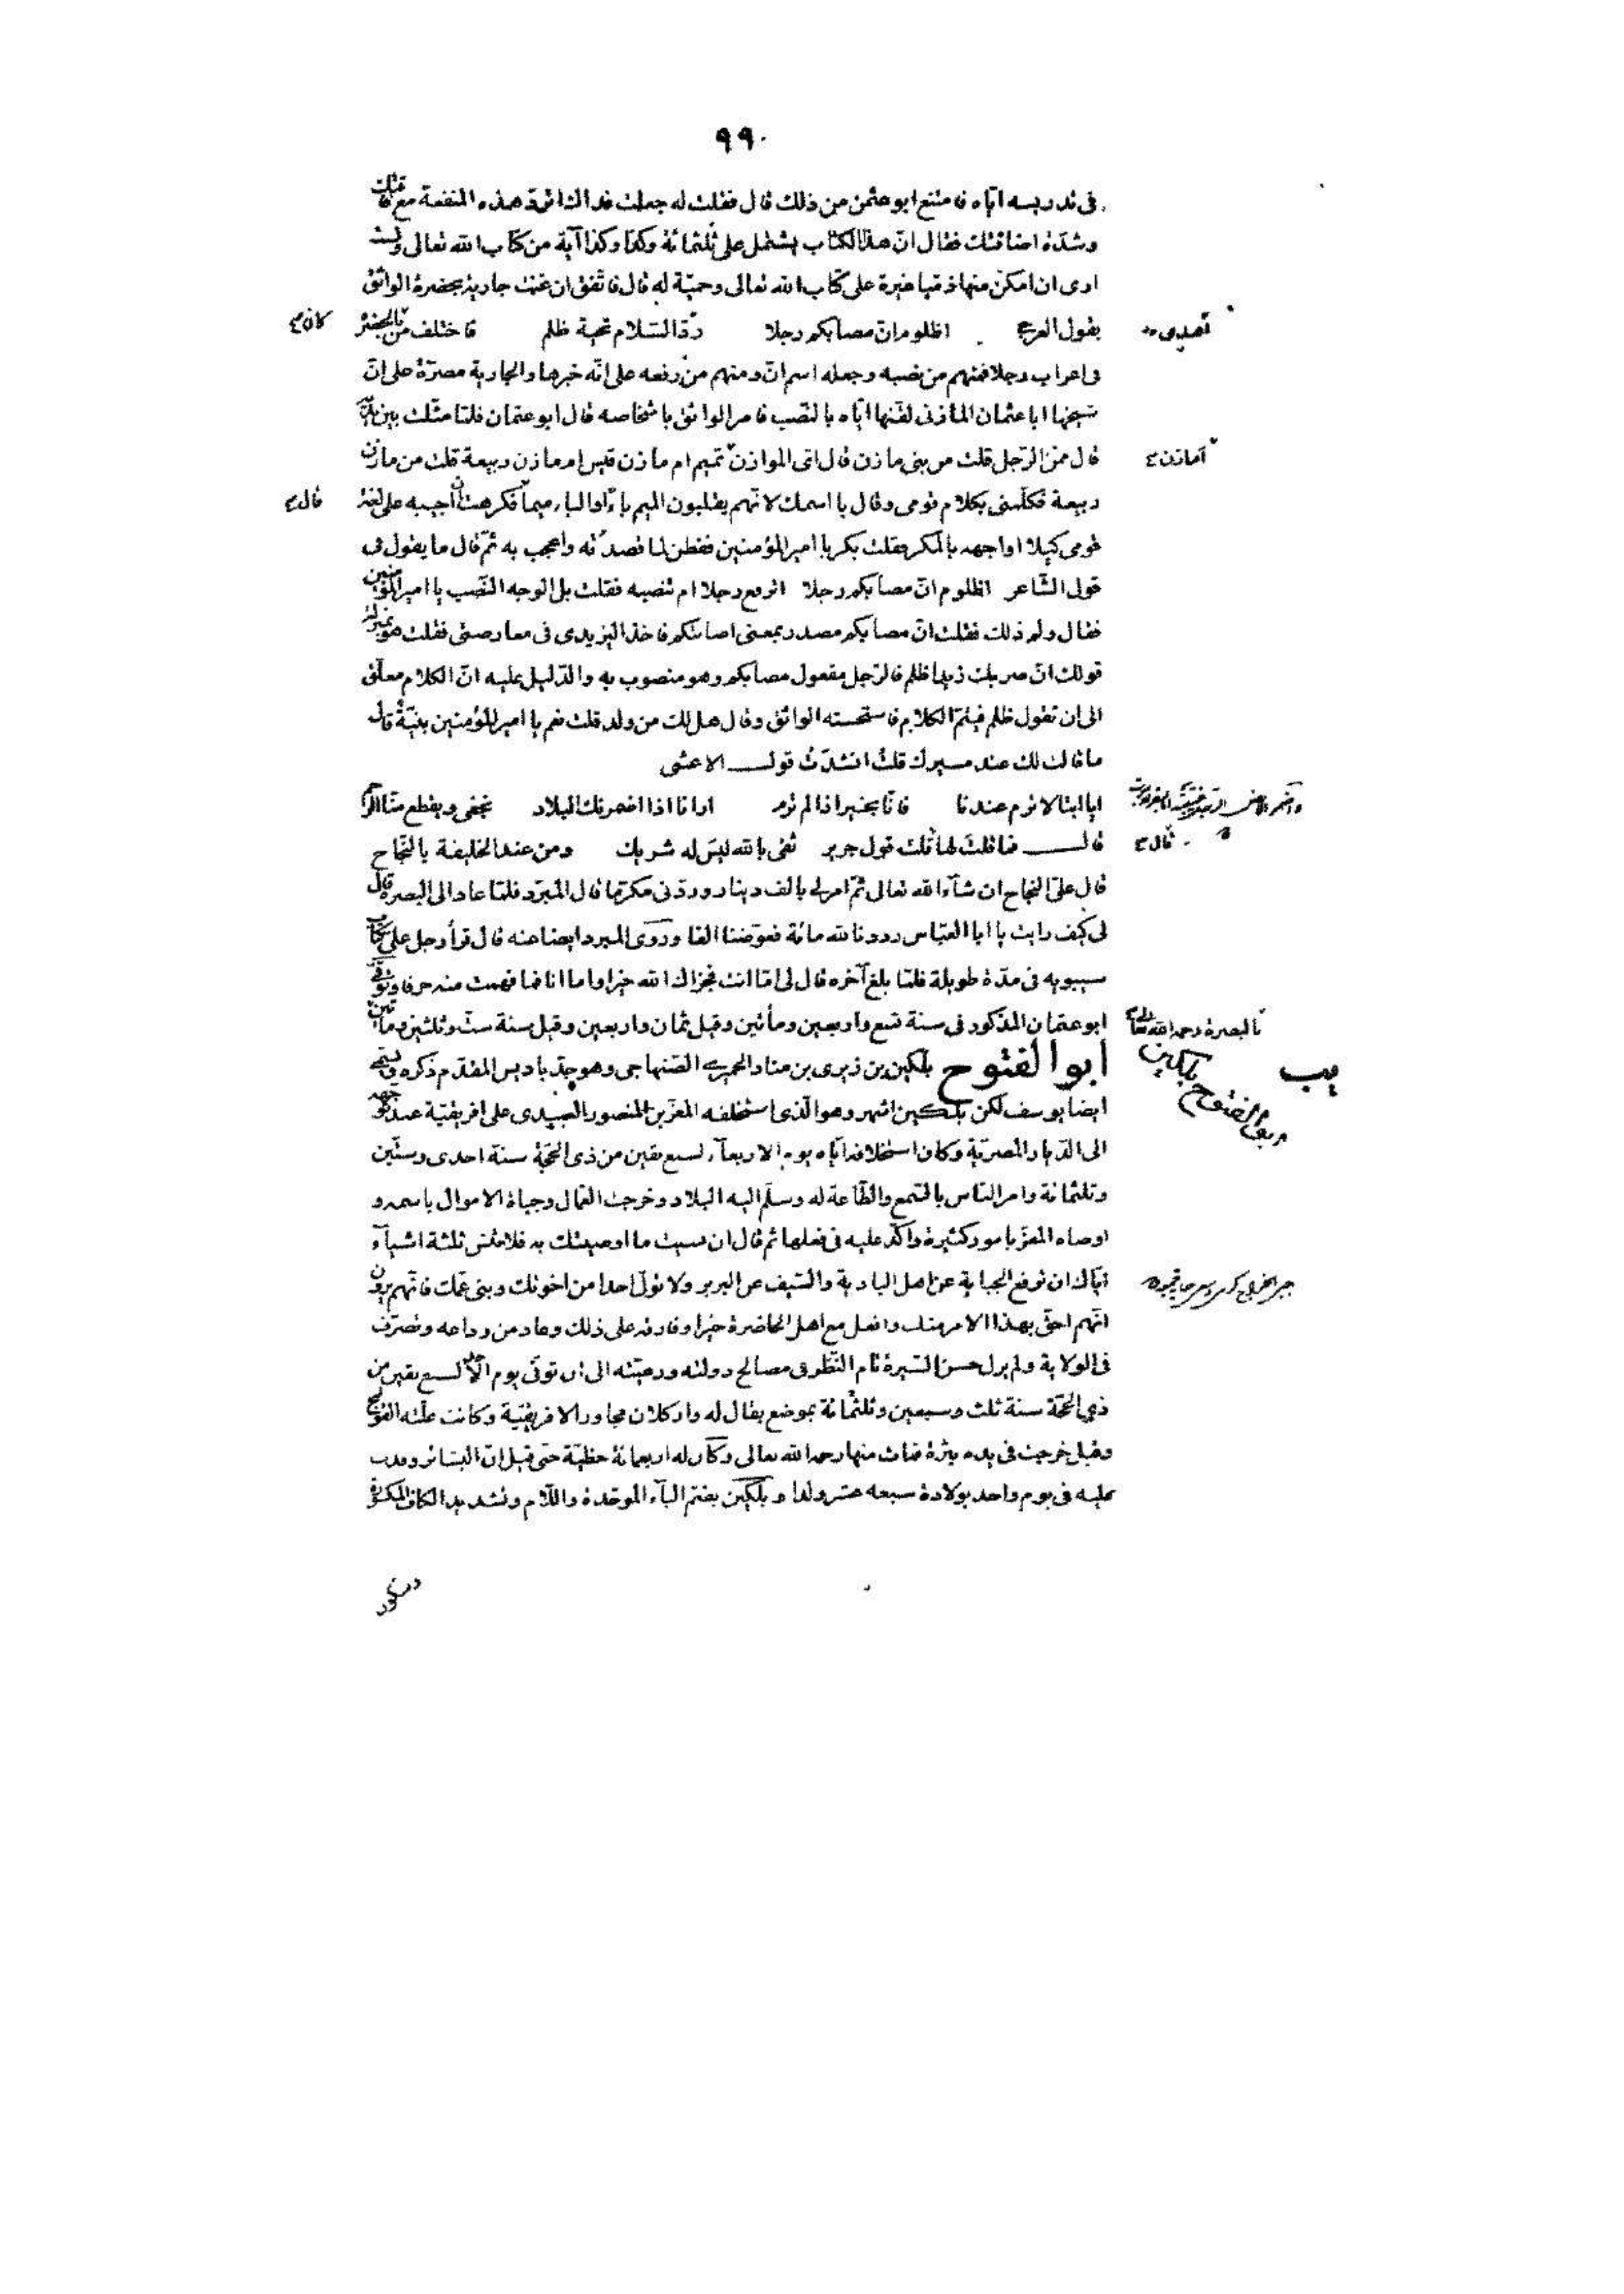 ٩٩٠
فى تدريسه اياه فامتنع ابو عثمن من ذلك قال فقلت له جعلت فداك اتردّ هذه المنفعة مع فاقتك
وشدّة اضاقتك فقال انّ هذا الكتاب يشتمل على ثلثمائة وكذا وكذا آية من كتاب الله تعالى ولست
ارى ان امكّن منها ذميا غيرة على كتاب الله تعالى وحميّة له قال فاتّفق ان غنت جارية بحضرة الواثق
بقول العرجى اظلوم انّ مصابكم رجلا ردّ السّلام تحية ظلم فاختلف من بالحضرة كان
فى اعراب رجلا فمنهم من نصبه وجعله اسم انّ ومنهم من رفعه على انّه خبرها والجارية مصرّة على انّ
شيخها ابا عثمان المازنى لقّنها ايّاه بالنّصب فامر الواثق باشخاصه قال ابو عثمان فلمّا مثلت بين يديه
قال ممّن الرّجل قلت من بنى مازن قال اىّ الموازن تميم ام مازن قيس ام مازن ربيعة قلت من مازن
أمازن
ربيعة فكلّمنى بكلام قومى وقال با اسمك لانّهم يقلبون الميم باءً والباء ميماً فكرهت ان أجيبه على لغة
قال
قومى كيلا اواجهه بالمكر فقلت بكر يا امير المؤمنين ففطن لما قصدته واعجب به ثمّ قال ما تقول فى
قول الشّاعر اظلوم انّ مصابكم رجلا اترفع رجلا ام تنصبه فقلت بل الوجه النّصب يا امير المؤمنين
فقال ولم ذلك فقلت انّ مصابكم مصدر بمعنى اصابتكم فاخذ اليزيدى فى معارضتى فقلت هو بمنزلة
قولك انّ ضربك زيدا ظلم فالرّجل مفعول مصابكم وهو منصوب به والدّليل عليه انّ الكلام معلّق
الى ان تقول ظلم فيتمّ الكلام فاستحسنه الواثق وقال هل لك من ولد قلت نعم يا امير المؤمنين بنيّةٌ قال
ما قالت لك عند مسيرك قلت انشدت قول الاعشى
ايا ابتا لا ترم عندنا فانّا بخير اذا لم ترم ارانا اذا اضمرتك البلاد نجفى ويقطع منّا الرّحم
قال فما قلت لها قلت قول جرير ثقى بالله ليس له شريك ومن عند الخليفة بالنّجاح
قال
قال علىّ النجاح ان شآء الله تعالى ثمّ امر لى بالف دينار وردّنى مكرّما قال المبرّد فلمّا عاد الى البصرة قال
لى كيف رايت يا ابا العبّاس رددنا لله مائة فعوّضنا الفا وروى المبرد ايضا عنه قال قرأ رجل علىّ كتاب
سيبويه فى مدّة طويلة فلمّا بلغ آخره قال لى امّا انت فجزاك الله خيرا واما انا فما فهمت منه حرفا وتوفّى
ابو عثمان المذكور فى سنة تسع واربعين ومأتين وقيل ثمان واربعين وقيل سنة ستّ وثلثين ومأتين
بالبصرة رحمه الله تعالى
ابو الفتوح بلكين بن زيرى بن مناد الحميرى الصّنهاجى وهو جدّ باديس المقدّم ذكره ويسمّى
يب
ابو الفتوح بلكين
ايضا يوسف لكن بلكين اشهر وهو الّذى استخلفه المعزّ بن المنصور العبيدى على افريقيّة عند توجهه
الى الدّيار المصريّة وكان استخلافه ايّاه يوم الاربعآء لسبع بقين من ذى الحجّة سنة احدى وستّين
وثلثمائة وامر النّاس بالسّمع والطّاعة له وسلّم اليه البلاد وخرجت العمّال وجباة الاموال باسمه و
اوصاه المعزّ بامور كثيرة واكّد عليه فى فعلها ثم قال ان نسيت ما اوصيتك به فلا تنس ثلثة اشيآء
ايّاك ان ترفع الجباية عن اهل البادية والسّيف عن البربر ولا تولّ احدا من اخوتك وبنى عمّك فانّهم يرون
انّهم احقّ بهذا الامر منك وافعل مع اهل الحاضرة خيرا وفارقه على ذلك وعاد من وداعه وتصرّف
فى الولاية ولم يزل حسن السّيرة تام النّظر فى مصالح دولته ورعيّته الى ان توفّى يوم الاحد لسبع بقين من
ذى الحجّة سنة ثلث وسبعين وثلثمائة بموضع يقال له واركلان مجاور الافريقيّة وكانت علّته القولنج
وقيل خرجت فى يده بثرة فمات منها رحمه الله تعالى وكان له اربعمائة حظيّة حتى قيل انّ البشائر وفدت
عليه فى يوم واحد بولادة سبعة عشر ولدا و بلكين بضمّ البآء الموحّدة واللّام وتشديد الكاف المكسورة